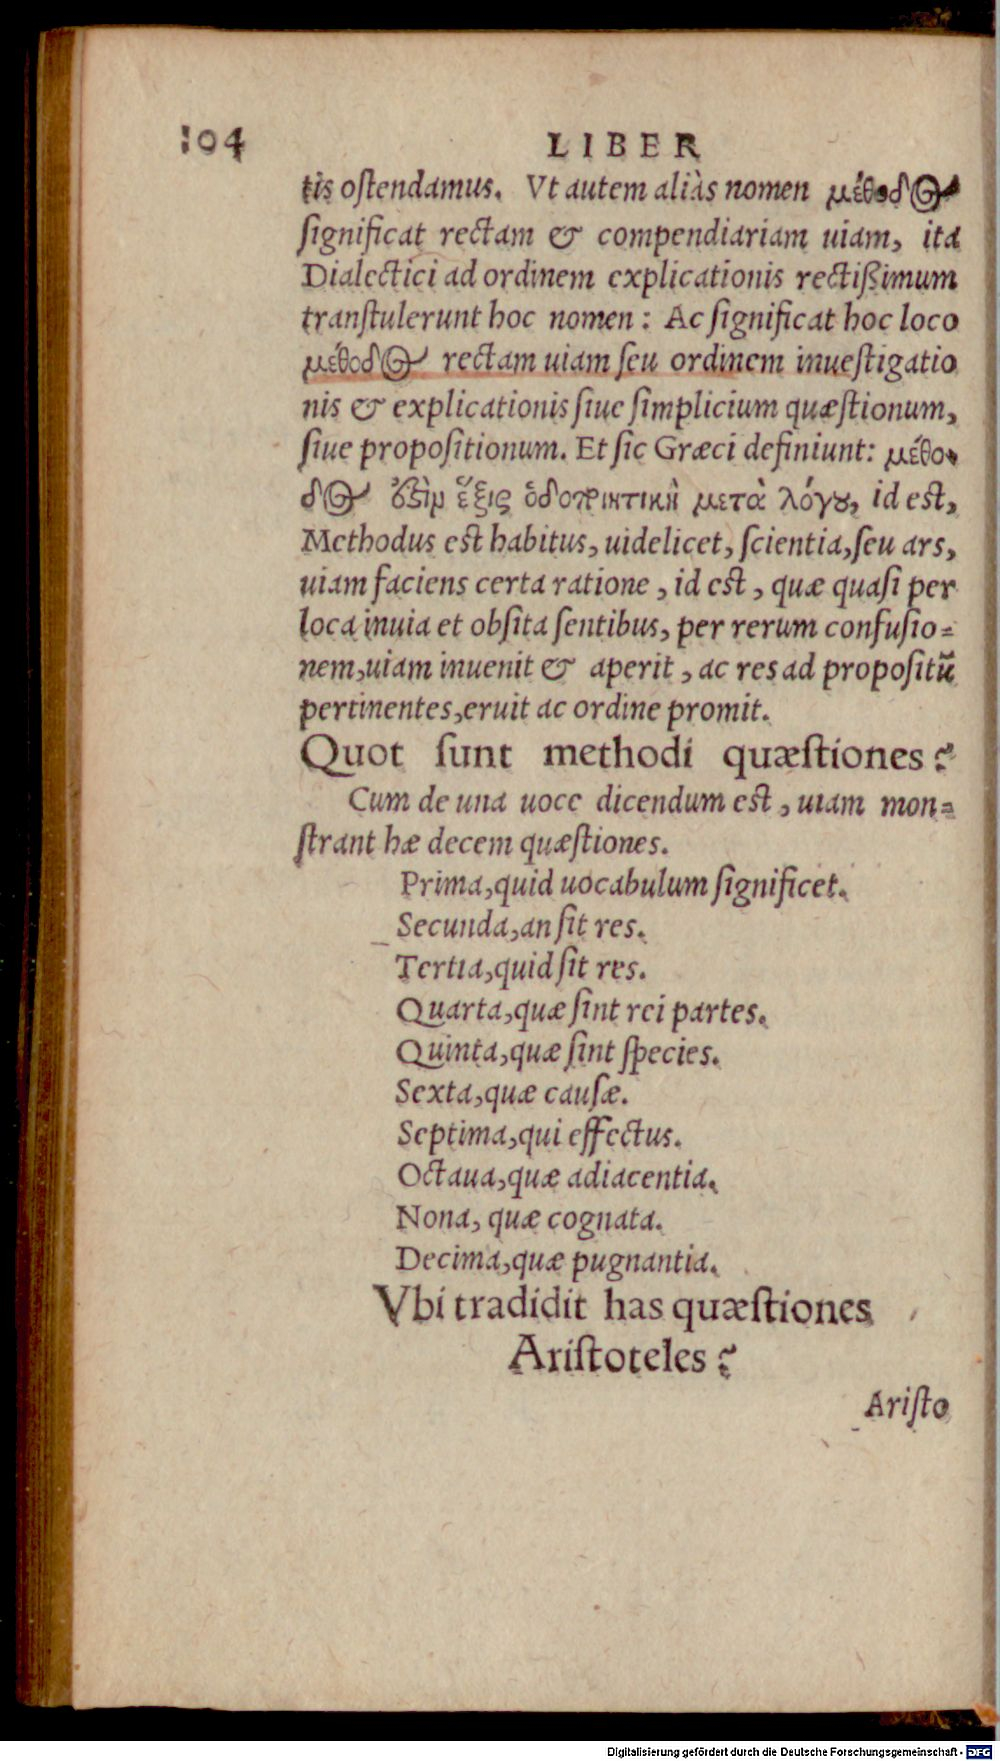 104 LIBER
tis oſtendamus. Vt autem aliàs nomen μέθοδος
ſignificat rectam & compendiariam uiam, ita
Dialectici ad ordinem explicationis rectißimum
tranſtulerunt hoc nomen: Ac ſignificat hoc loco
μέθοδος rectam uiam ſeu ordinem inueſtigatio
nis & explicationis ſiue ſimplicium quæſtionum,
ſiue propoſitionum. Et ſic Græci definiunt: μέθο-
δος ὅξιμ ἕξις ὁδοποιητικὴ μετὰ λόγου, id eſt,
Methodus eſt habitus, uidelicet, ſcientia, ſeu ars,
uiam faciens certa ratione, id eſt, quæ quaſi per
loca inuia et obſita ſentibus, per rerum confuſio-
nem, uiam inuenit & aperit, ac res ad propoſitũ
pertinentes, eruit ac ordine promit.
Quot ſunt methodi quæſtiones?
Cum de una uoce dicendum eſt, uiam mon-
ſtrant hæ decem quæſtiones.
Prima, quid uocabulum ſignificet.
Secunda, an ſit res.
Tertia, quid ſit res.
Quarta, quæ ſint rei partes.
Quinta, quæ ſint ſpecies.
Sexta, quæ cauſæ.
Septima, qui effectus.
Octaua, quæ adiacentia.
Nona, quæ cognata.
Decima, quæ pugnantia.
Vbi tradidit has quæſtiones
Ariſtoteles?
Ariſto
Digitalisierung gefördert durch die Deutsche Forschungsgemeinschaft - DFG